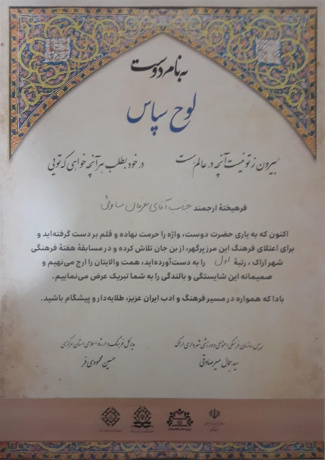 به نام دوست
لوح سپاس
بیرون ز تو نیست آنچه در عالم هست
در خود بطلب هر آنچه خواهی که تویی
فرهیختهٔ ارجمند جناب آقای
اکنون که به یاری حضرت دوست، واژه را حرمت نهاده و قلم بر دست گرفته‌اید و
برای اعتلای فرهنگ این مرز پرگهر، از بن جان تلاش کرده و در مسابقهٔ هفتهٔ فرهنگی
شهر اراک، رتبهٔ اول را به دست‌آورده‌اید، همت والایتان را ارج می‌نهیم و
صمیمانه این شایستگی و بالندگی را به شما تبریک عرض می‌نماییم.
بادا که همواره در مسیر فرهنگ و ادب ایران عزیز، طلایه‌دار و پیشگام باشید.
رئیس سازمان فرهنگی اجتماعی و ورزشی شهرداری اراک
سید جمال میرصادقی
مدیرکل فرهنگ و ارشاد اسلامی استان مرکزی
حسین محمودی فر